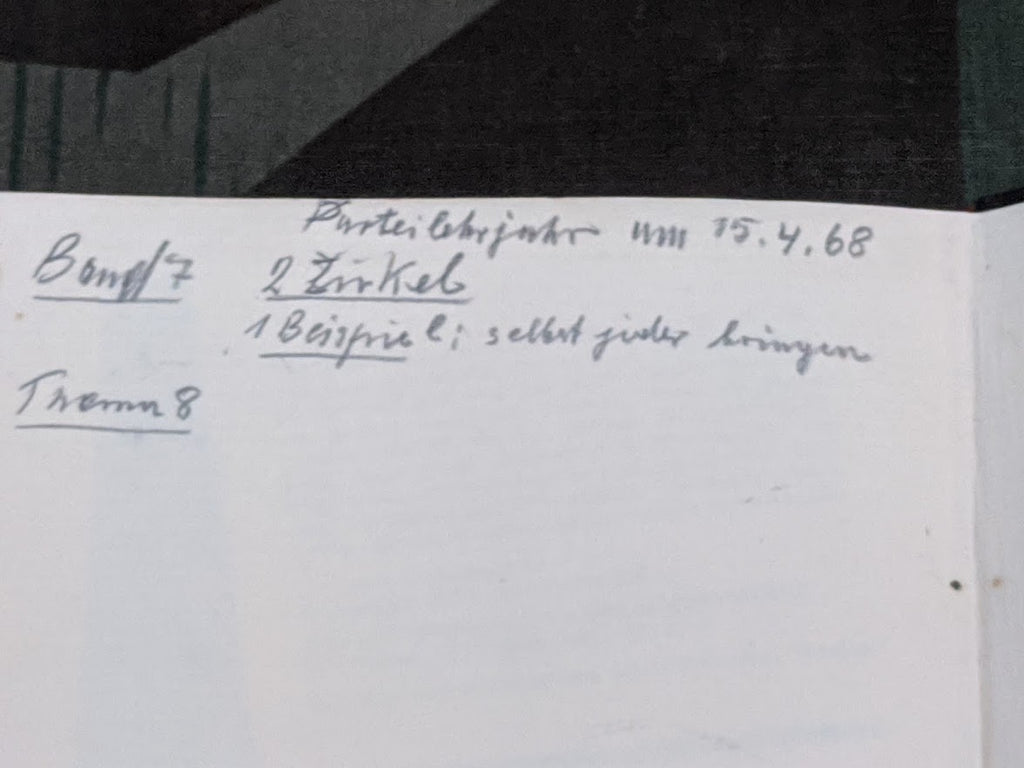 Parteilehrjahr am 15.4.68
7 2 Zirkel
1 Beispiel; selbst jeder bringen
Thema 8